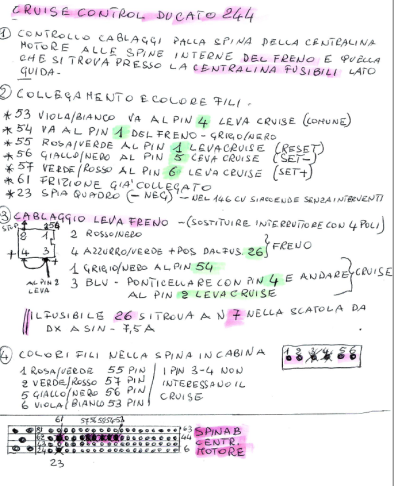 CRUISE CONTROL DUCATO 244
① CONTROLLO CABLAGGI DALLA SPINA DELLA CENTRALINA
MOTORE ALLE SPINE INTERNE DEL FRENO E QUELLA
CHE SI TROVA PRESSO LA CENTRALINA FUSIBILI LATO
GUIDA-
② COLLEGAMENTO E COLORE FILI.
* 53 VIOLA/BIANCO VA AL PIN 4 LEVA CRUISE (COMUNE)
* 54 VA AL PIN 1 DEL FRENO - GRIGIO/NERO
* 55 ROSA/VERDE AL PIN 1 LEVA CRUISE (RESET)
* 56 GIALLO/NERO AL PIN 5 LEVA CRUISE (SET-)
* 57 VERDE/ROSSO AL PIN 6 LEVA CRUISE (SET+)
* 61 FRIZIONE GIA' COLLEGATO
* 23 SPIA QUADRO (- NEG) - NEL 146 CV SI ACCENDE SENZA INTERVENTI
③ CABLAGGIO LEVA FRENO - (SOSTITUIRE INTERRUTTORE CON 4 POLI)
STOP 54
2 1
4 3
+
AL PIN 2
LEVA
2 ROSSO/NERO
4 AZZURRO/VERDE + POS DAL FUS. 26
FRENO
1 GRIGIO/NERO AL PIN 54
3 BLU - PONTICELLARE CON PIN 4 E ANDARE
AL PIN 2 LEVA CRUISE
CRUISE
IL FUSIBILE 26 SI TROVA A N 7 NELLA SCATOLA DA
DX A SIN - 7,5 A
④ COLORI FILI NELLA SPINA IN CABINA
1 2 3 4 5 6
1 ROSA/VERDE 55 PIN
2 VERDE/ROSSO 57 PIN
5 GIALLO/NERO 56 PIN
6 VIOLA/BIANCO 53 PIN
I PIN 3-4 NON
INTERESSANO IL
CRUISE
61 57 56 55 54 53
63
44
6
23
SPINA B
CENTR.
MOTORE